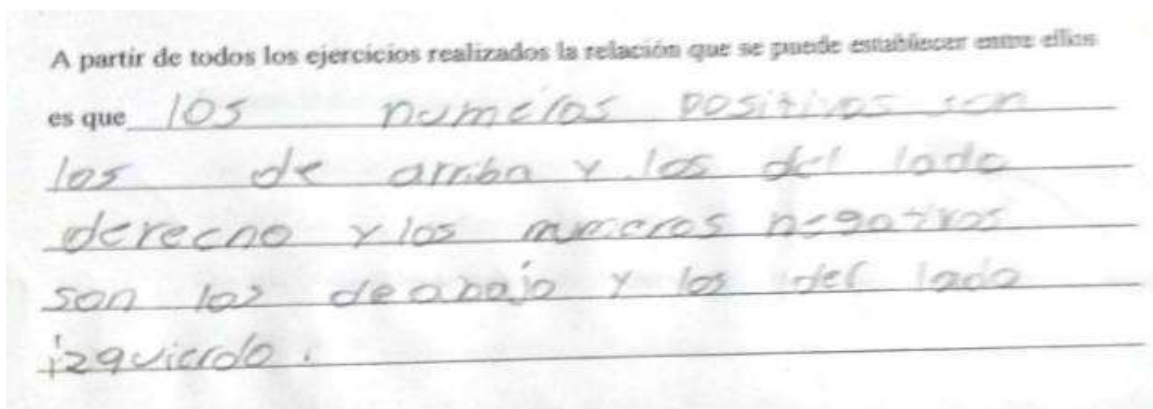 A partir de todos los ejercicios realizados la relación que se puede establecer entre ellos
es que los numeros positivos son
los de arriba y los del lado
derecho y los numeros negativos
son los de abajo y los del lado
izquierdo.